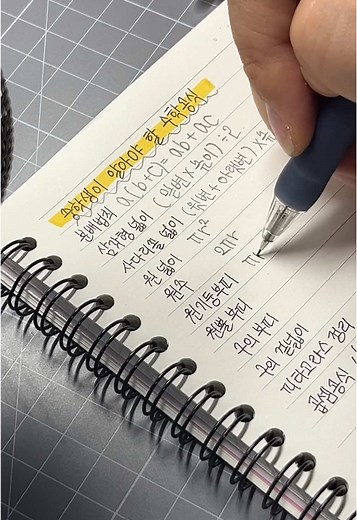 중학생이 알아야 할 수학공식
분배법칙 a(b+c)=ab+ac
삼각형 넓이 (밑변×높이)÷2
사다리꼴 넓이 (윗변+아랫변)×높
원 넓이 πr²
원주 2πr
원기둥부피 π
원뿔 부피
구의부피
구의 겉넓이
피타고라스 정리
곱셈공식